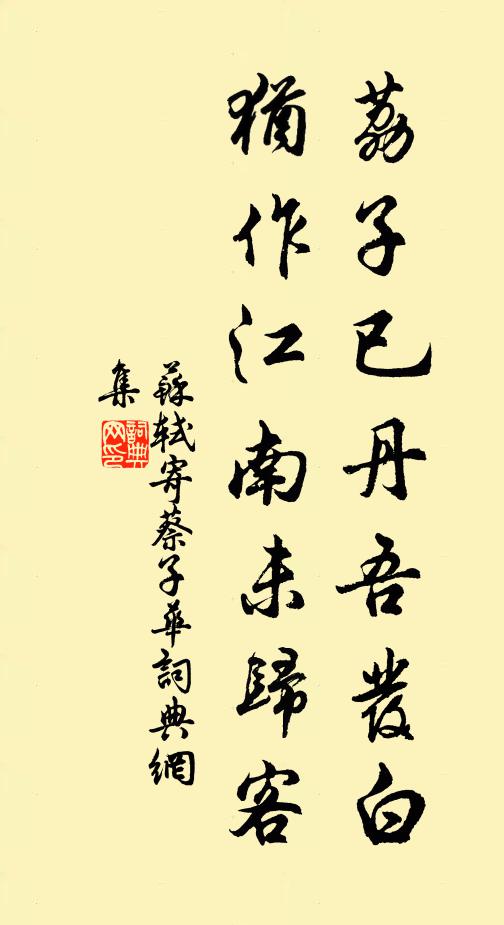 荔子已丹吾發白
猶作江南未歸客
蘇軾寄蔡子華詞典網
集
詞典網印